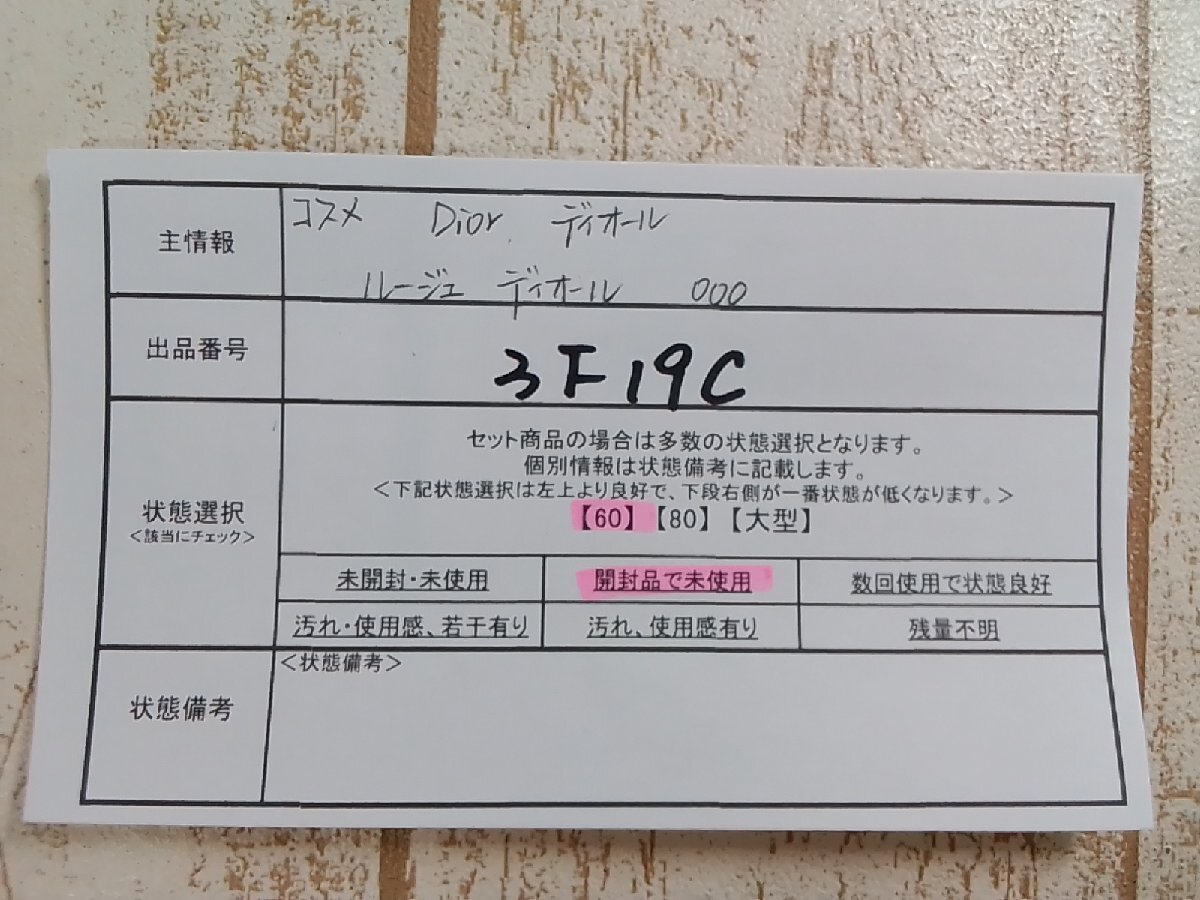 主情報
コスメ Dior ディオール
ルージュ ディオール 000
出品番号
3F19C
状態選択
<該当にチェック>
セット商品の場合は多数の状態選択となります。
個別情報は状態備考に記載します。
<下記状態選択は左上より良好で、下段右側が一番状態が低くなります。>
【60】【80】【大型】
未開封・未使用 開封品で未使用 数回使用で状態良好
汚れ・使用感、若干有り 汚れ、使用感有り 残量不明
状態備考
<状態備考>